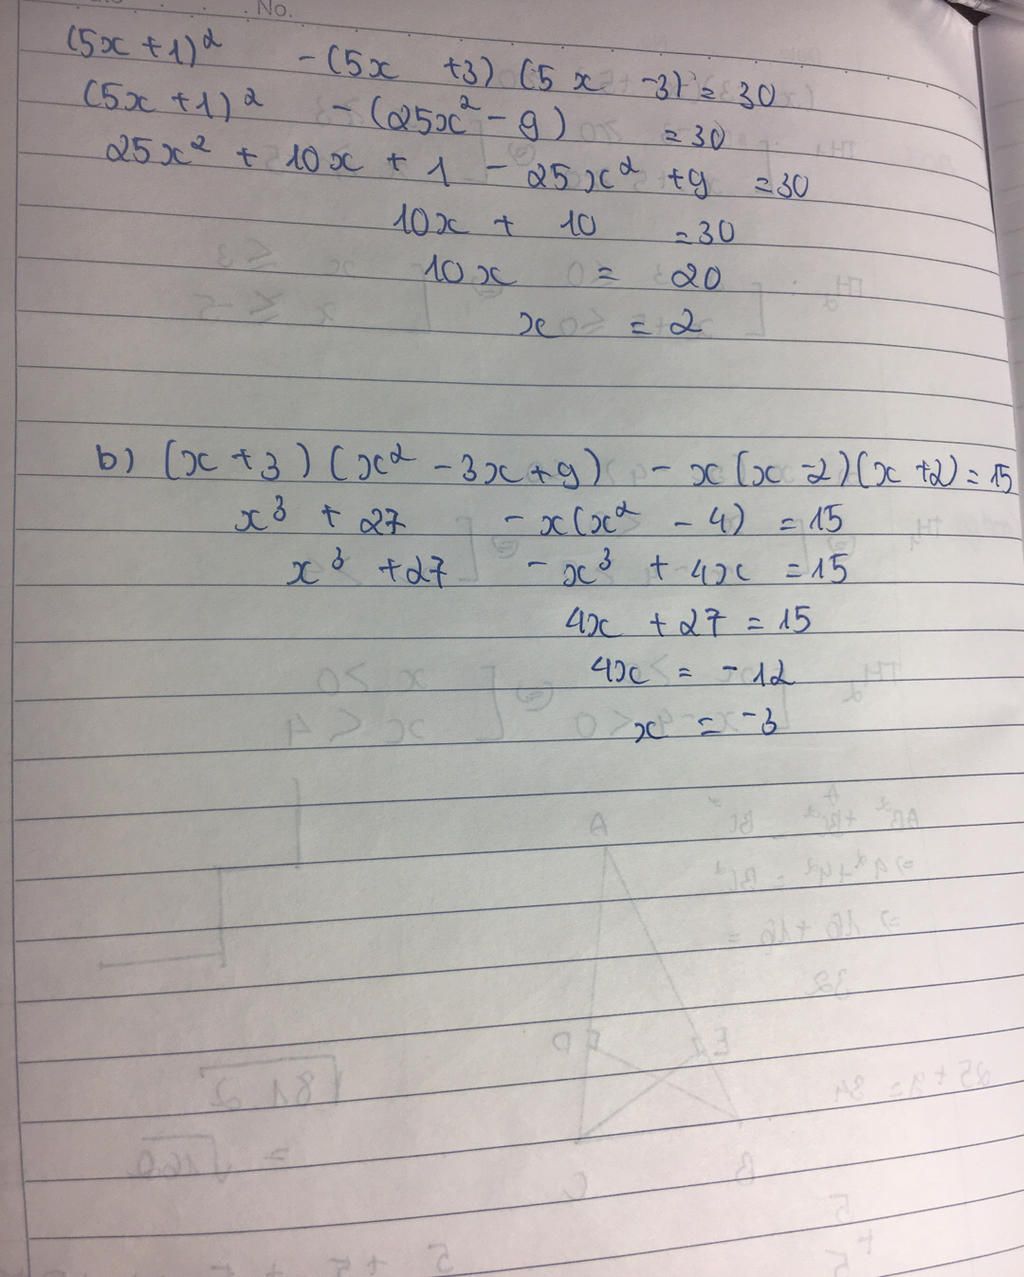 No.
(5x + 1)² - (5x + 3) (5x - 3) = 30
(5x + 1)² - (25x² - 9) = 30
25x² + 10x + 1 - 25x² + 9 = 30
10x + 10 = 30
10x = 20
x = 2
b) (x + 3) (x² - 3x + 9) - x (x - 2) (x + 2) = 15
x³ + 27 - x(x² - 4) = 15
x³ + 27 - x³ + 4x = 15
4x + 27 = 15
4x = -12
x = -3